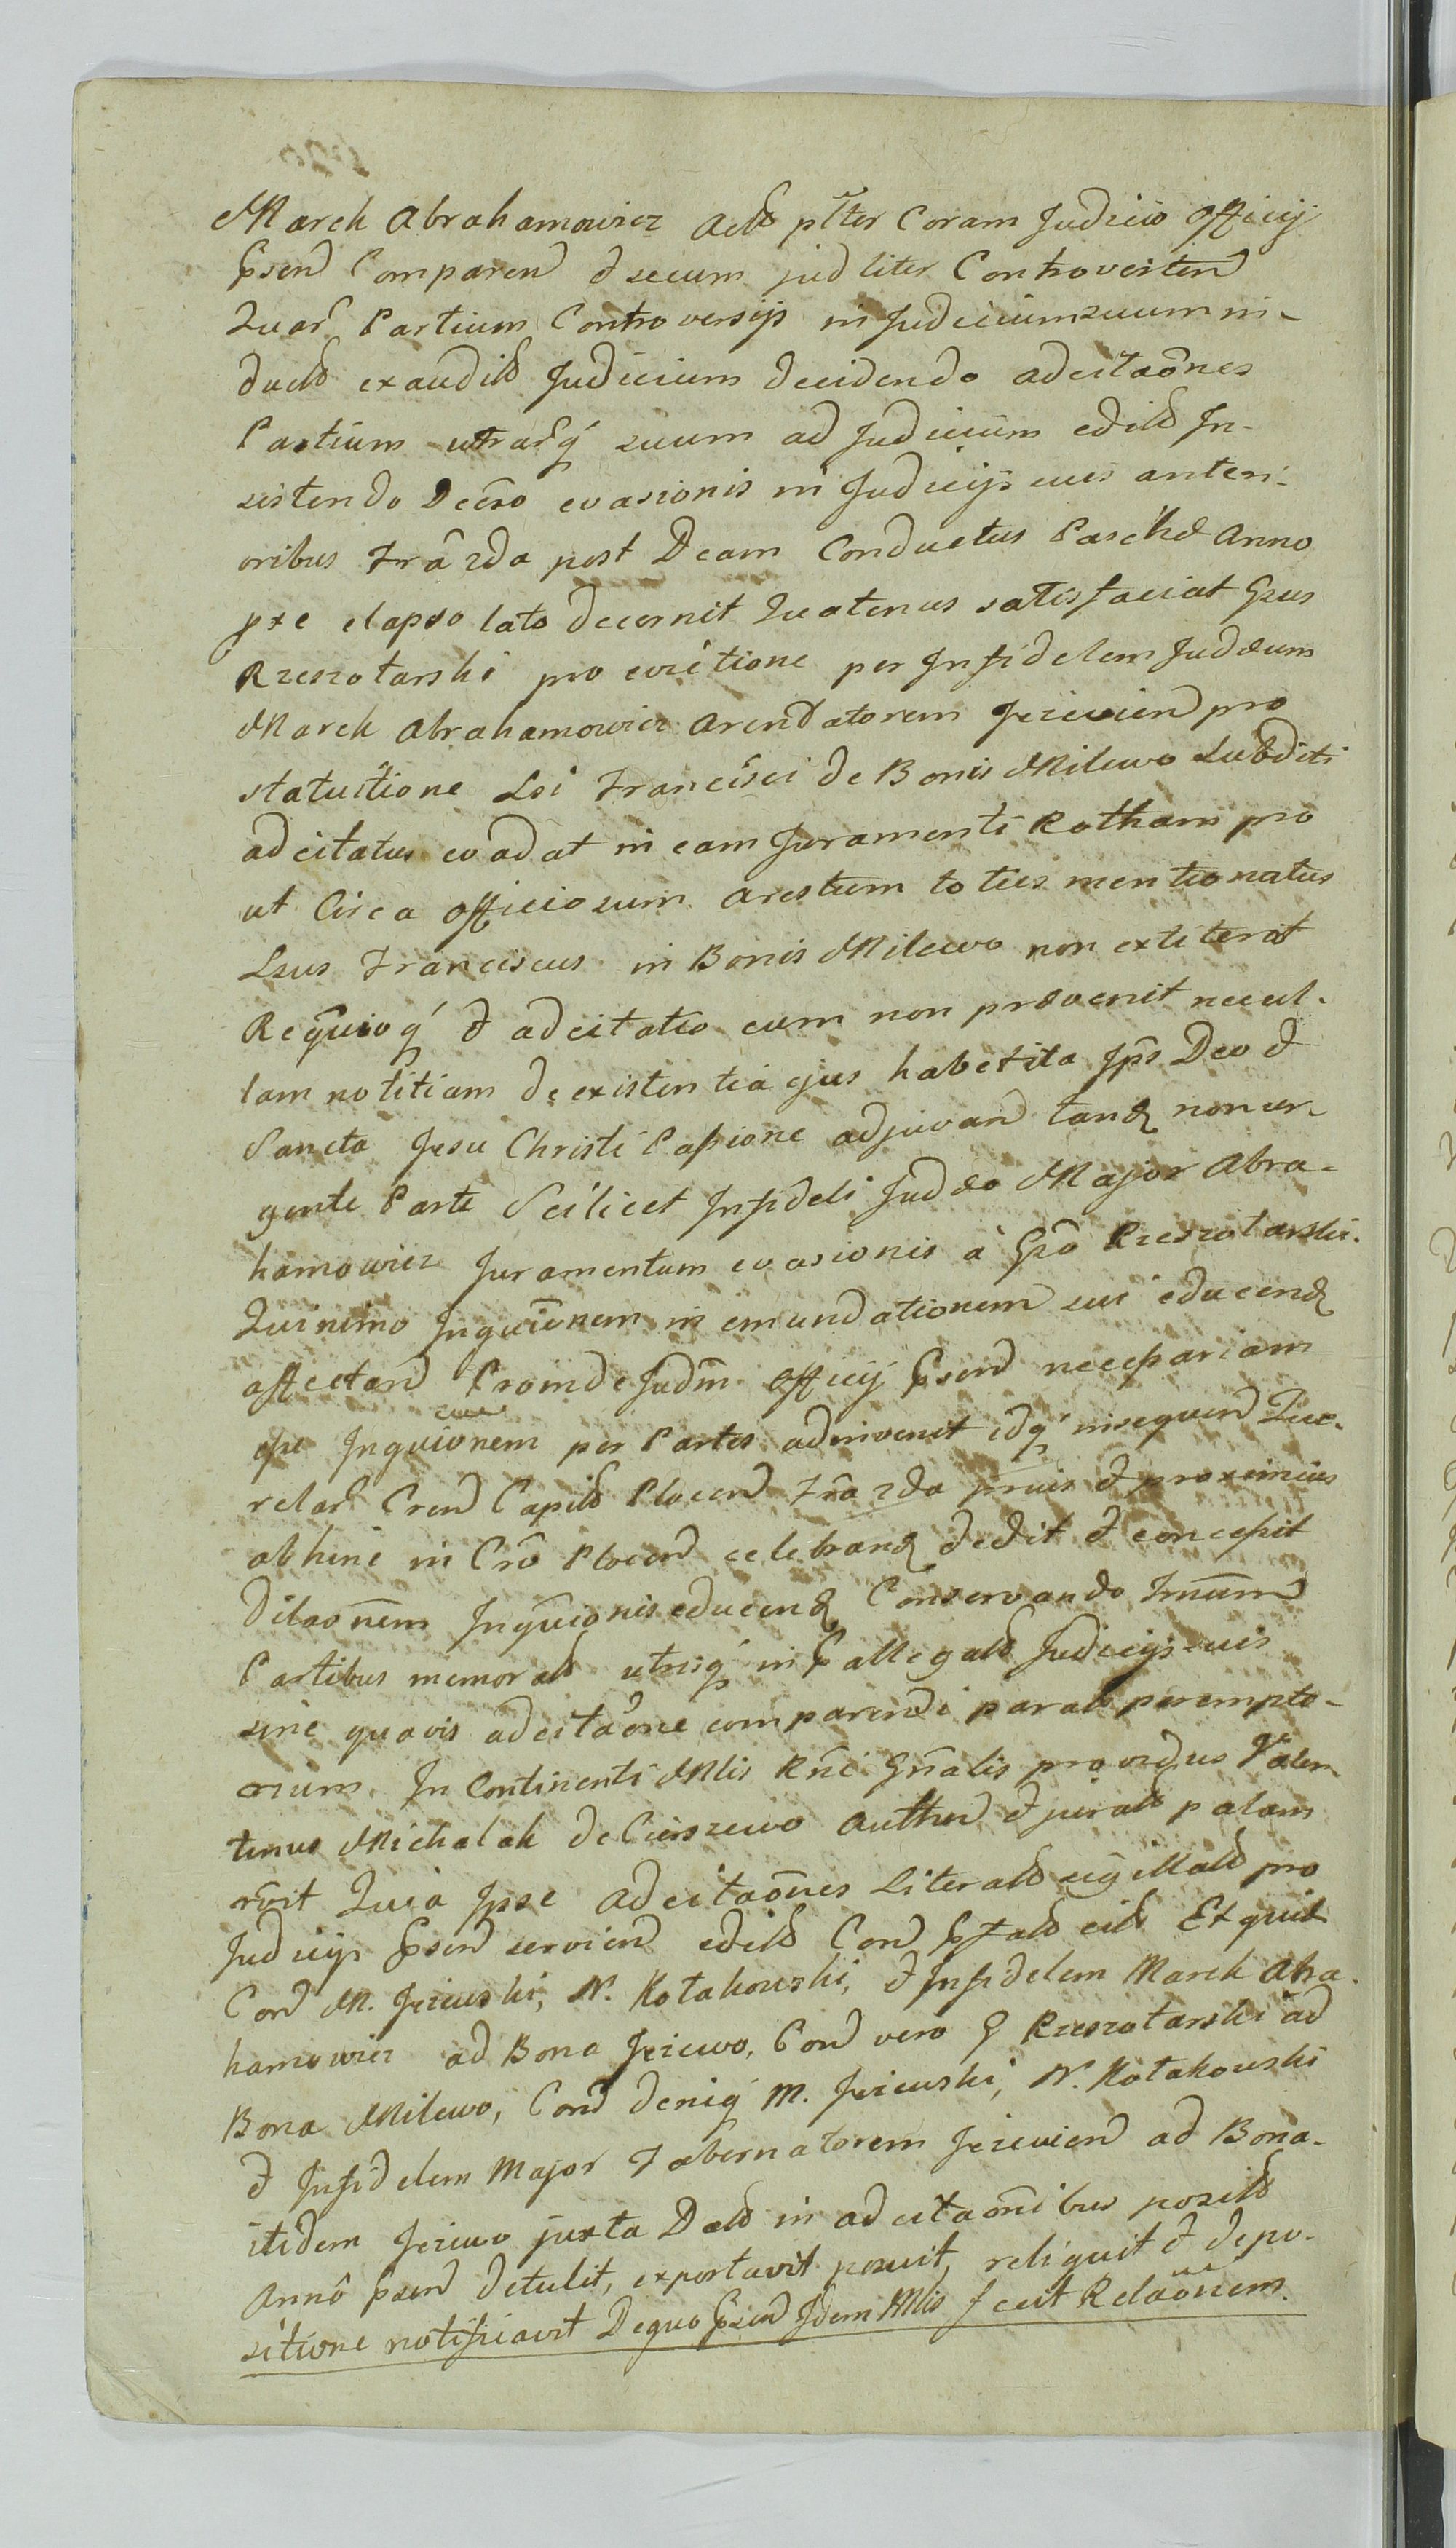 Marek Abrahamowicz Actis pñter Coram Judicio Officij
Psend Comparen et secum judliter Controverten
Quar Partium Controversijs in Judicium suum in-
ductis exauditis Judicium decidendo adcitaões
Partium utrarq suum ad Judicium editis In-
sistendo Decro evasionis in Judicijs suis anteri-
oribus Fra 2da post Dcam Conductus Paschæ Anno
præelapso lato decernit Quatenus satisfaciat Gsus
Rzeszotarski pro evictione per Infidelem Judæum
Marek Abrahamowicz Arendatorem Jezewien pro
statuitione Lsi Francisci de Bonis Milewo Subditi
adcitatus evadat in eam Juramenti Rotham pro
ut Circa Officiosum Arestum toties mentionatus
Lsus Franciscus in Bonis Milewo non extiterat
Reqũioq et adcitatio eum non prævenit nec ul-
lam notitiam de existentia ejus habet ita Ips Deo et
Sancta Jesu Christi Passione adjuvan tanq non ur-
gente Parte Scilicet Infideli Judæo Major Abra-
hamowicz Juramentum evasionis à Gso Rzeszotarski.
Quinimo Inquiõnem in emundationem sui educend
affectan Proinde Judm Officij Psen necessariam
esse Inquiõnem per Partes adinvenit idq insequen Que-
relar Cren Capit Plocen Fra 2da prius et proximius
abhinc in Cro Plocen celebrand dedit et concessit
Dilaõnem Inqũionis educend Conservando Tmum
Partibus memoratis utrisq in Pallegatis Judicijs suis
sine quavis adcitaõne comparendi paratis perempto-
rium. In Continenti Mlis Rñi Gñalis providus Valen-
tinus Michalak de Cierszewo Authen et juratis palam
rvit Quia Ipse Adcitaões Literatis sigillatis pro
Judicijs Psen servien editis Con Pstatis eit Et quid
Con M. Jezewski, N. Kotakowski, et Infidelem Marek Abra-
hamowicz ad Bona Jezewo, Con vero G Rzeszotarski ad
Bona Milewo, Con deniq M. Jezewski, N. Kotakowski
et Infidelem Major Tabernatorem Jezewien ad Bona-
itidem Jezewo juxta Datis in adcitaoñibus positis
Anno psen detulit, exportavit posuit, reliquit et depo-
sitione notificavit De quo Psen Idem Mlis fecit Relaõnem.